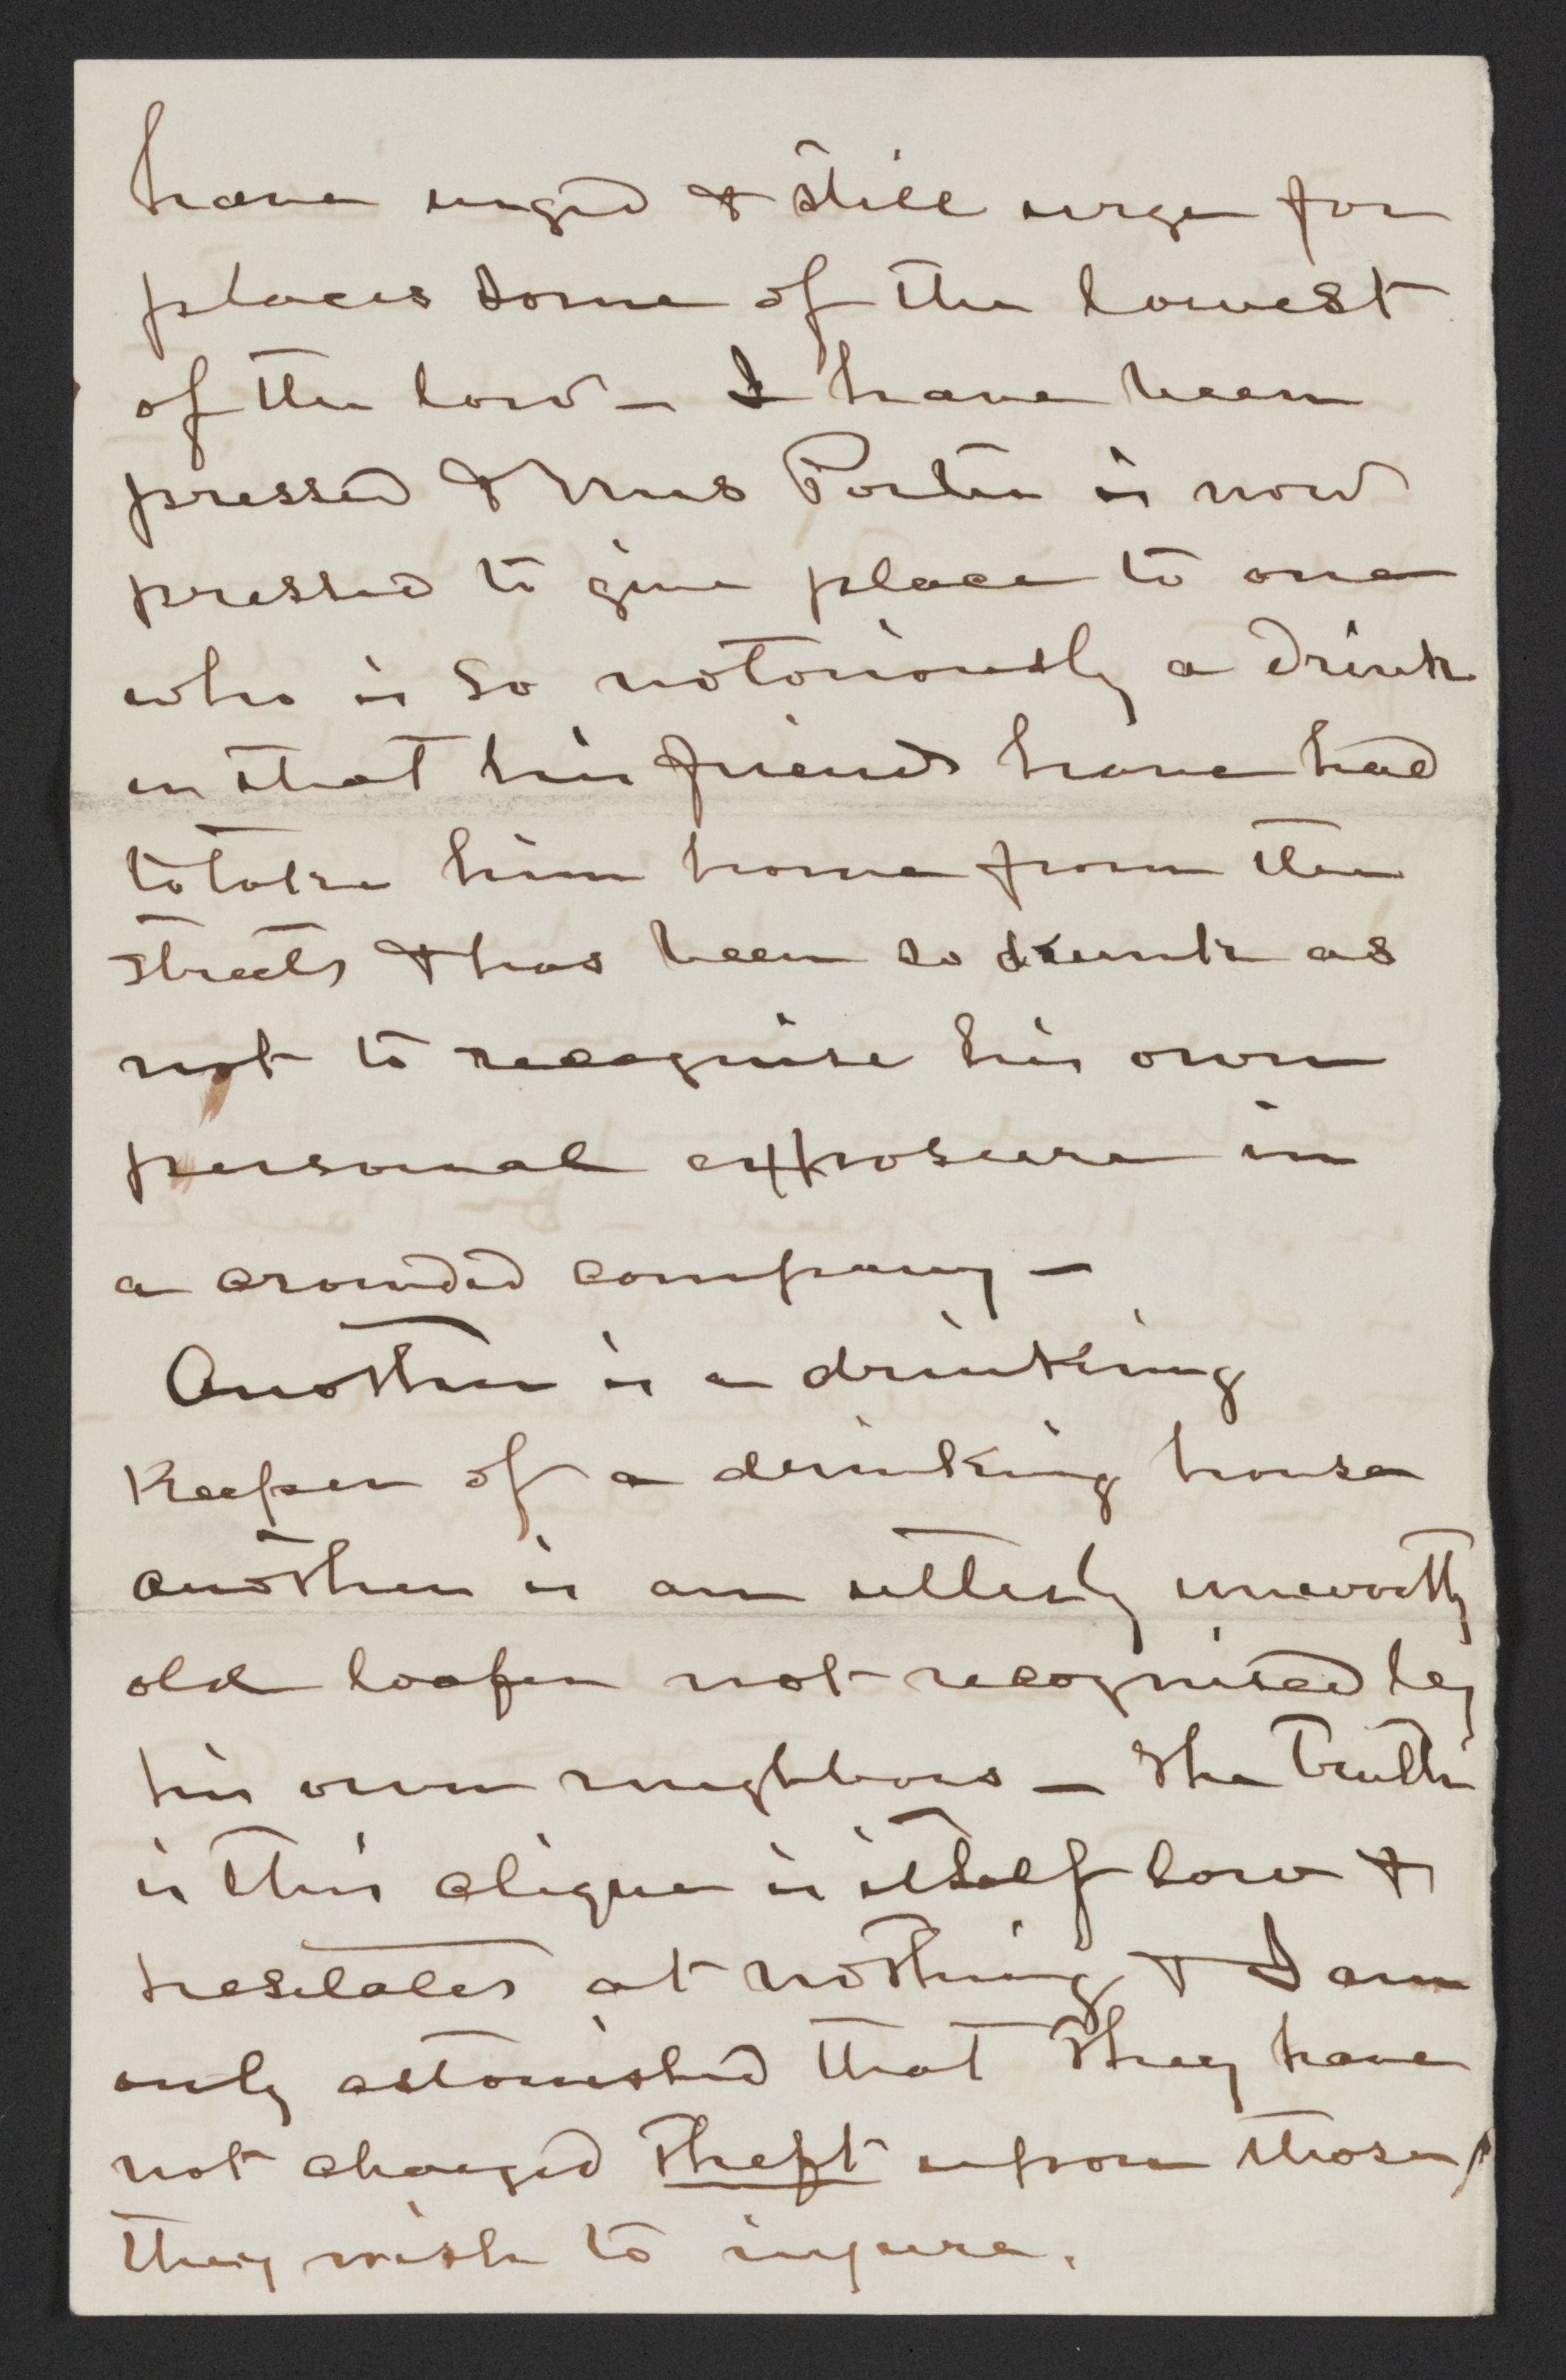 have urged & still urge for
places some of the lowest
of the low - I have been
pressed & Mrs Porter is now
pressed to give place to one
who is so notoriously a drunk
en that his friends have had
to take him home from the
streets & has been so drunk as
not to recognise his own
personal exposure in
a crowded company -
Another is a drinking
Keeper of a drinking house
another is an utterly unworthy
old loafer not recognised by
his own neighbors - The Truth
is this clique is itself low &
hesitates at nothing & I am
only astonished that they have
not charged theft upon those
they wish to injure.